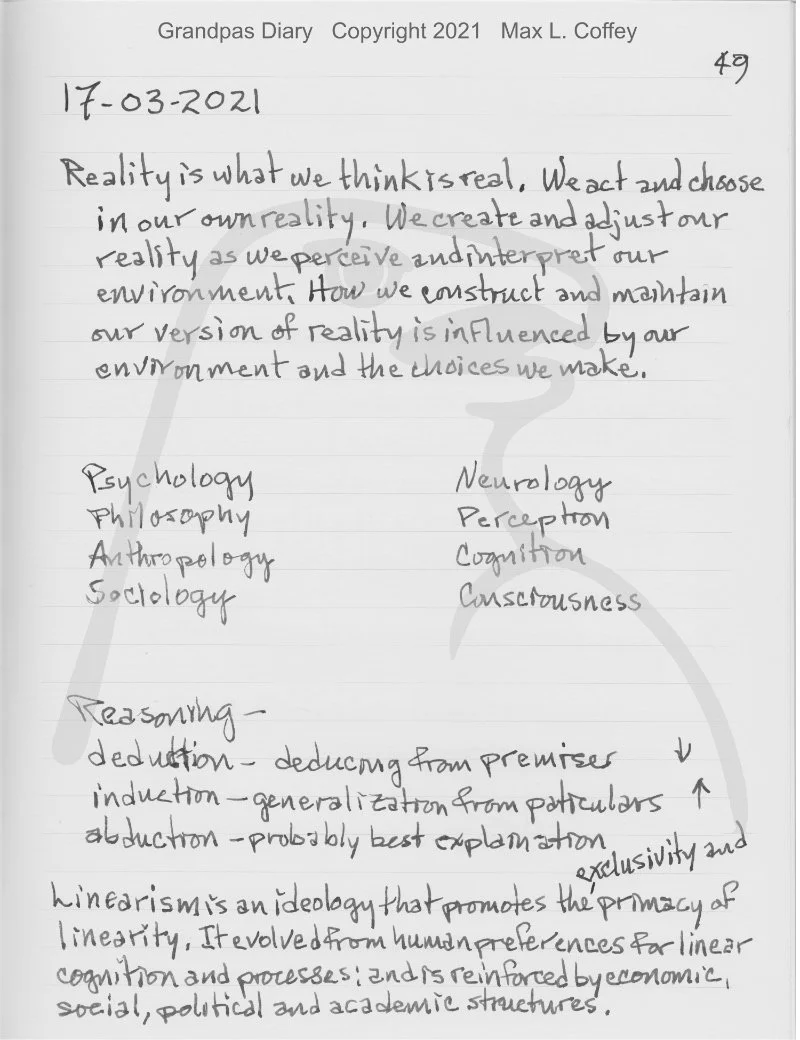 Grandpas Diary Copyright 2021 Max L. Coffey
49
17-03-2021
Reality is what we think is real. We act and choose
in our own reality. We create and adjust our
reality as we perceive and interpret our
environment. How we construct and maintain
our version of reality is influenced by our
environment and the choices we make.
Psychology Neurology
Philosophy Perception
Anthropology Cognition
Sociology Consciousness
Reasoning –
deduction – deducing from premises ↓
induction – generalization from paticulars ↑
abduction – probably best explaination
exclusivity and
Linearism is an ideology that promotes the primacy of
linearity. It evolved from human preferences for linear
cognition and processes; and is reinforced by economic,
social, political and academic structures.